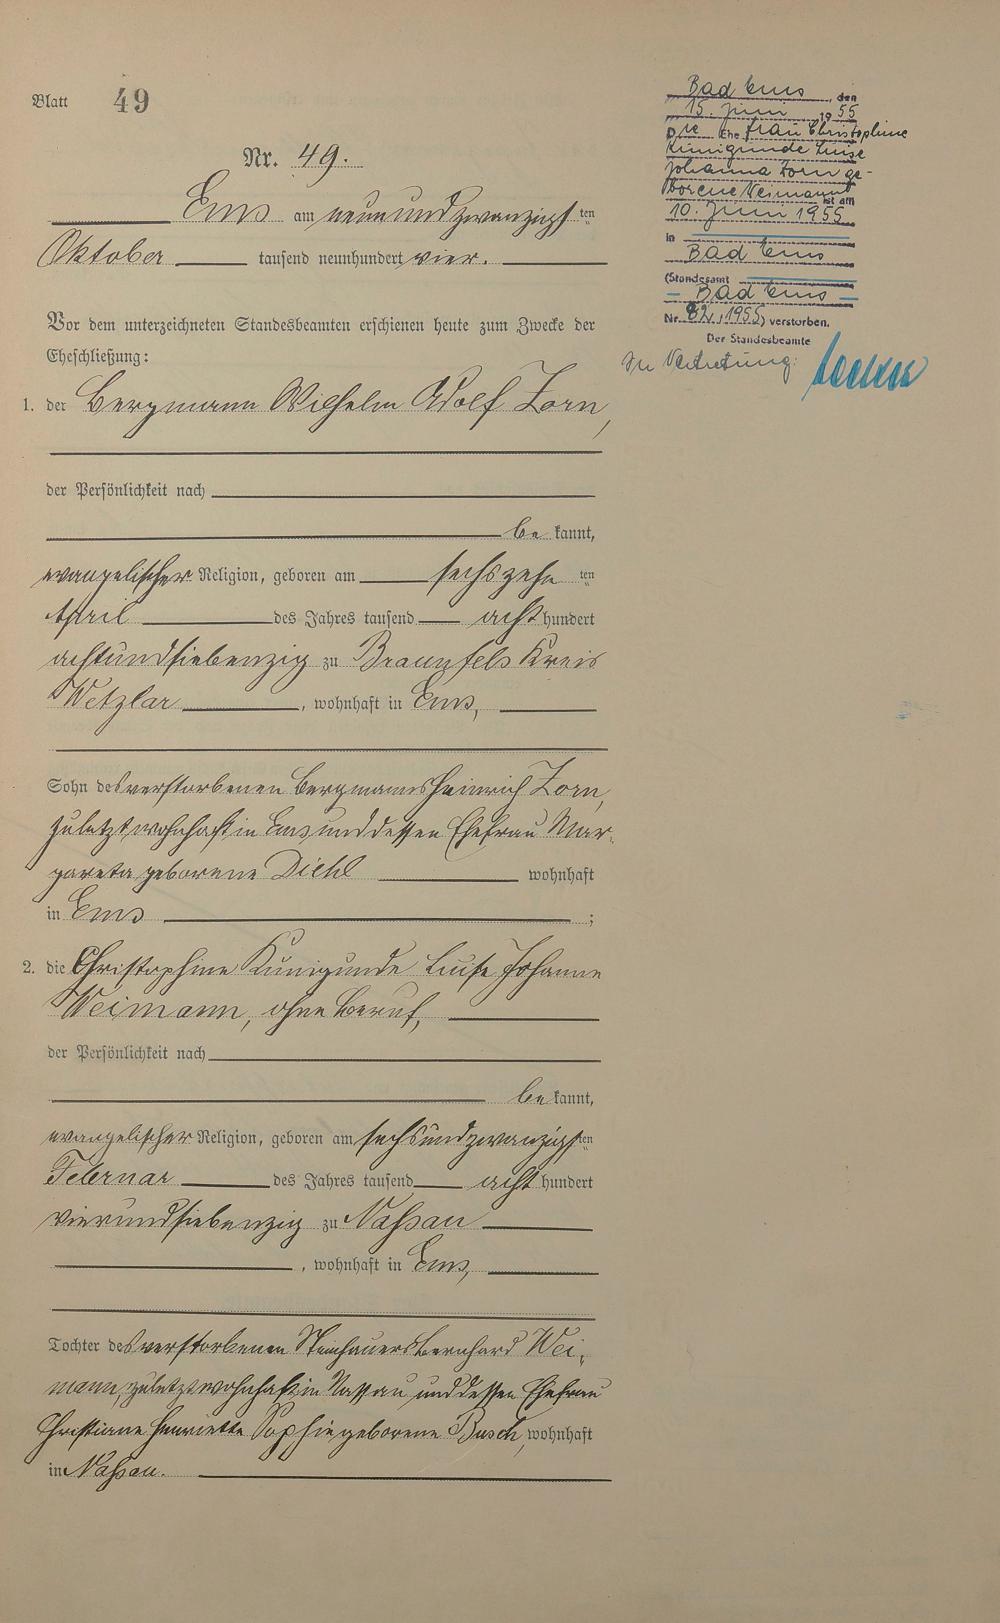 Blatt 49
Nr. 49.
Ems am neunundzwanzigsten
Oktober tausend neunhundert vier.
Vor dem unterzeichneten Standesbeamten erschienen heute zum Zwecke der
Eheschließung:
1. der Bergmann Wilhelm Adolf Zorn,
der Persönlichkeit nach
be kannt,
evangelischer Religion, geboren am sechszehnten
April des Jahres tausend acht hundert
achtundsiebenzig zu Braunfels Kreis
Wetzlar, wohnhaft in Ems,
Sohn des verstorbenen Bergmanns Heinrich Zorn,
zuletzt wohnhaft in Ems und dessen Ehefrau Mar-
gareta geborene Diehl wohnhaft
in Ems ;
2. die Christophine Kunigunde Luise Johanna
Weimann, ohne Beruf,
der Persönlichkeit nach
be kannt,
evangelischer Religion, geboren am sechsundzwanzigsten
Februar des Jahres tausend acht hundert
vierundsiebenzig zu Nassau
, wohnhaft in Ems,
Tochter des verstorbenen Steinhauers Bernhard Wei-
mann, zuletzt wohnhaft in Nassau und dessen Ehefrau
Christiane Henriette Sophie geborene Busch, wohnhaft
in Nassau.
Bad Ems, den
15. Juni 1955
Die Ehefrau Christophine
Kunigunde Luise
Johanna Zorn ge-
borene Weimann ist am
10. Juni 1955
in
Bad Ems
(Standesamt
Bad Ems
Nr. 82, 1955) verstorben.
Der Standesbeamte
In Vertretung: